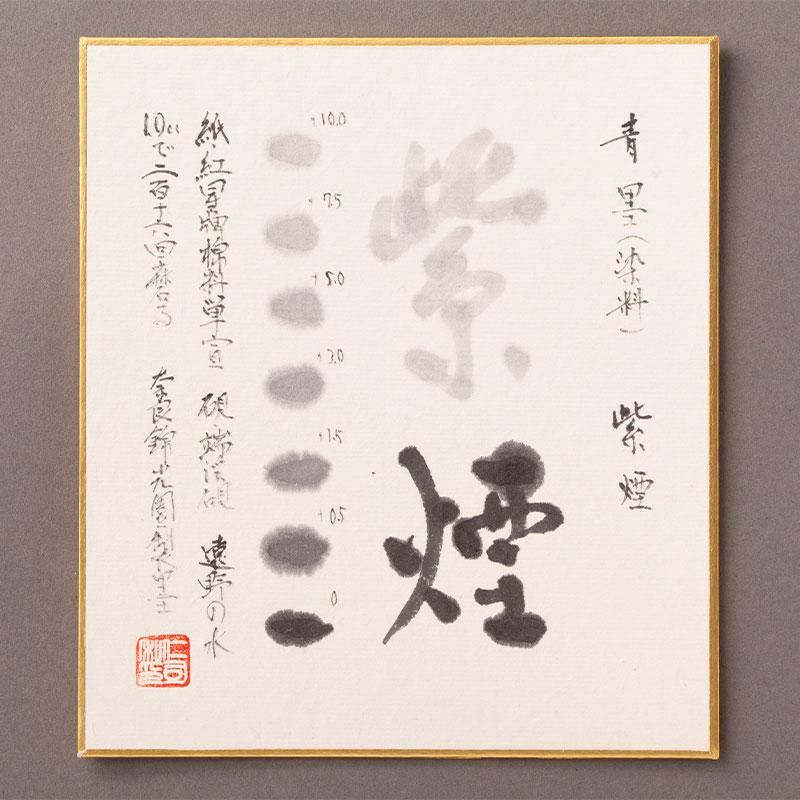 青墨(染料) 紫煙
紫煙
+10.0
+7.5
+5.0
+3.0
+1.5
+0.5
0
紙・紅星牌棉料単宣 硯・端渓硯 遠野の水
10ccで二百十六回磨る 奈良錦光園製墨